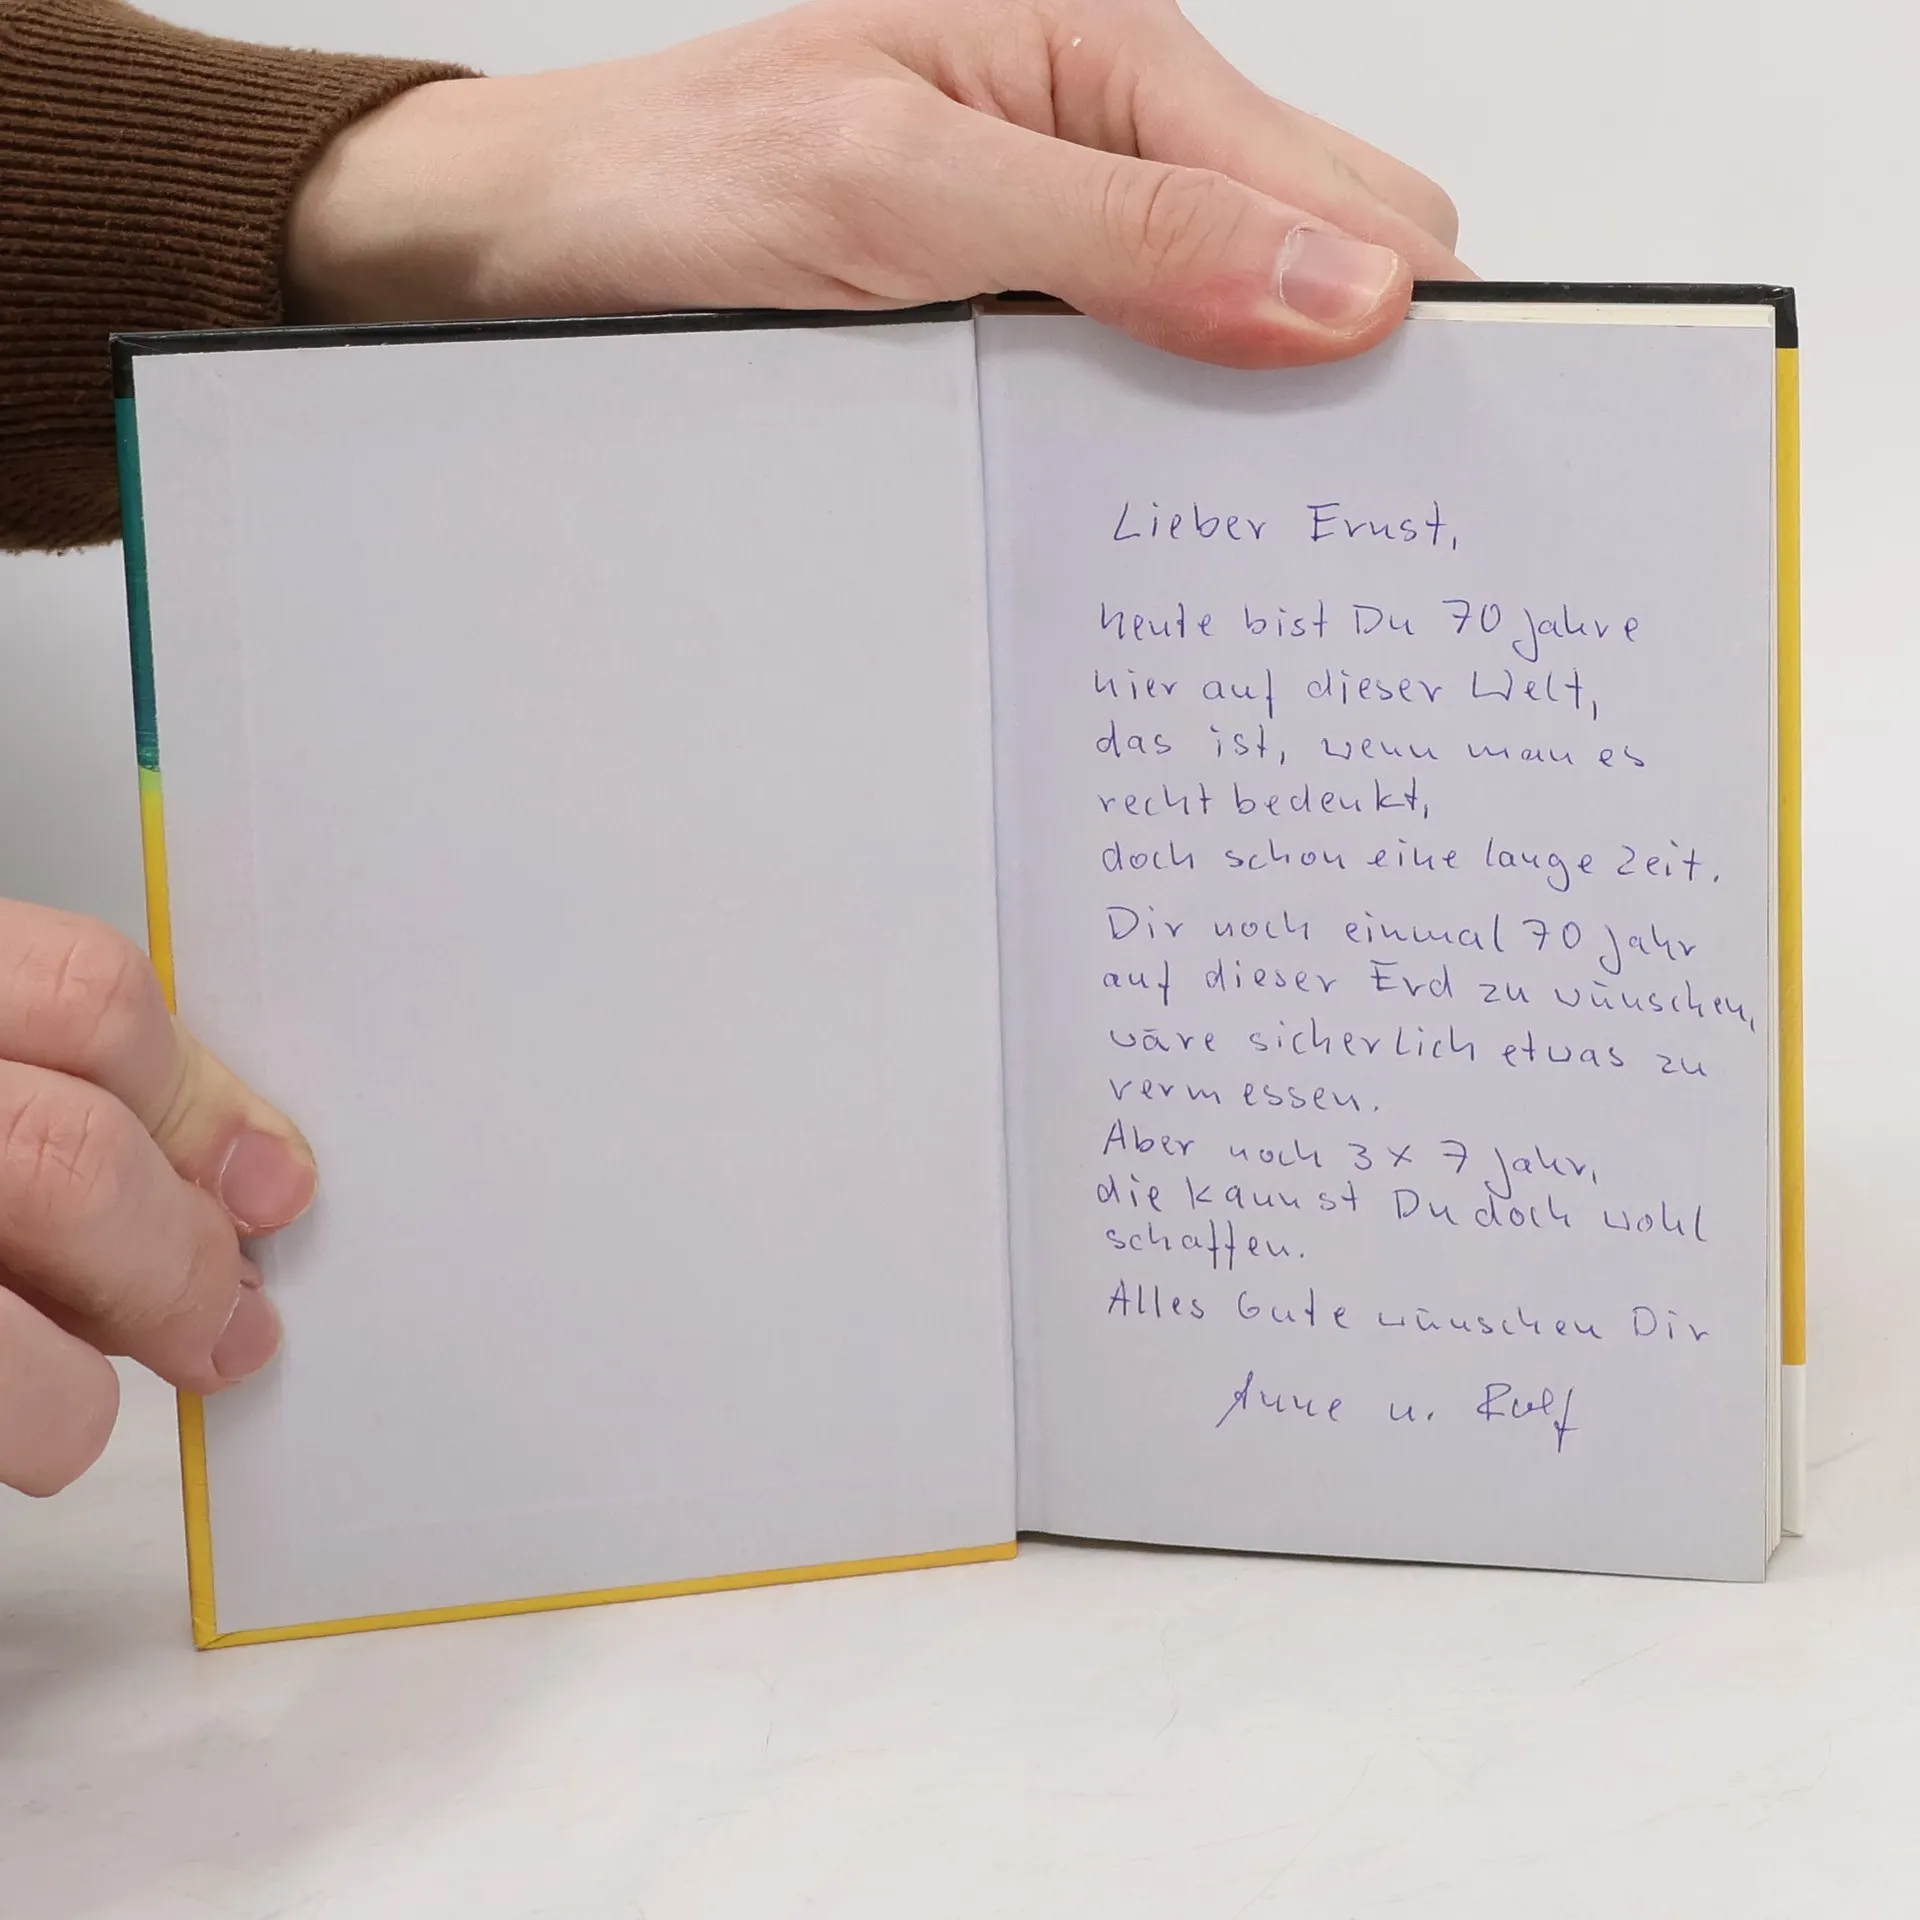 Lieber Ernst,
heute bist Du 70 Jahre
hier auf dieser Welt,
das ist, wenn man es
recht bedenkt,
doch schon eine lange Zeit.
Dir noch einmal 70 Jahr
auf dieser Erd zu wünschen,
wäre sicherlich etwas zu
vermessen.
Aber noch 3x 7 Jahr,
die kannst Du doch wohl
schaffen.
Alles Gute wünschen Dir
Anne u. Rolf